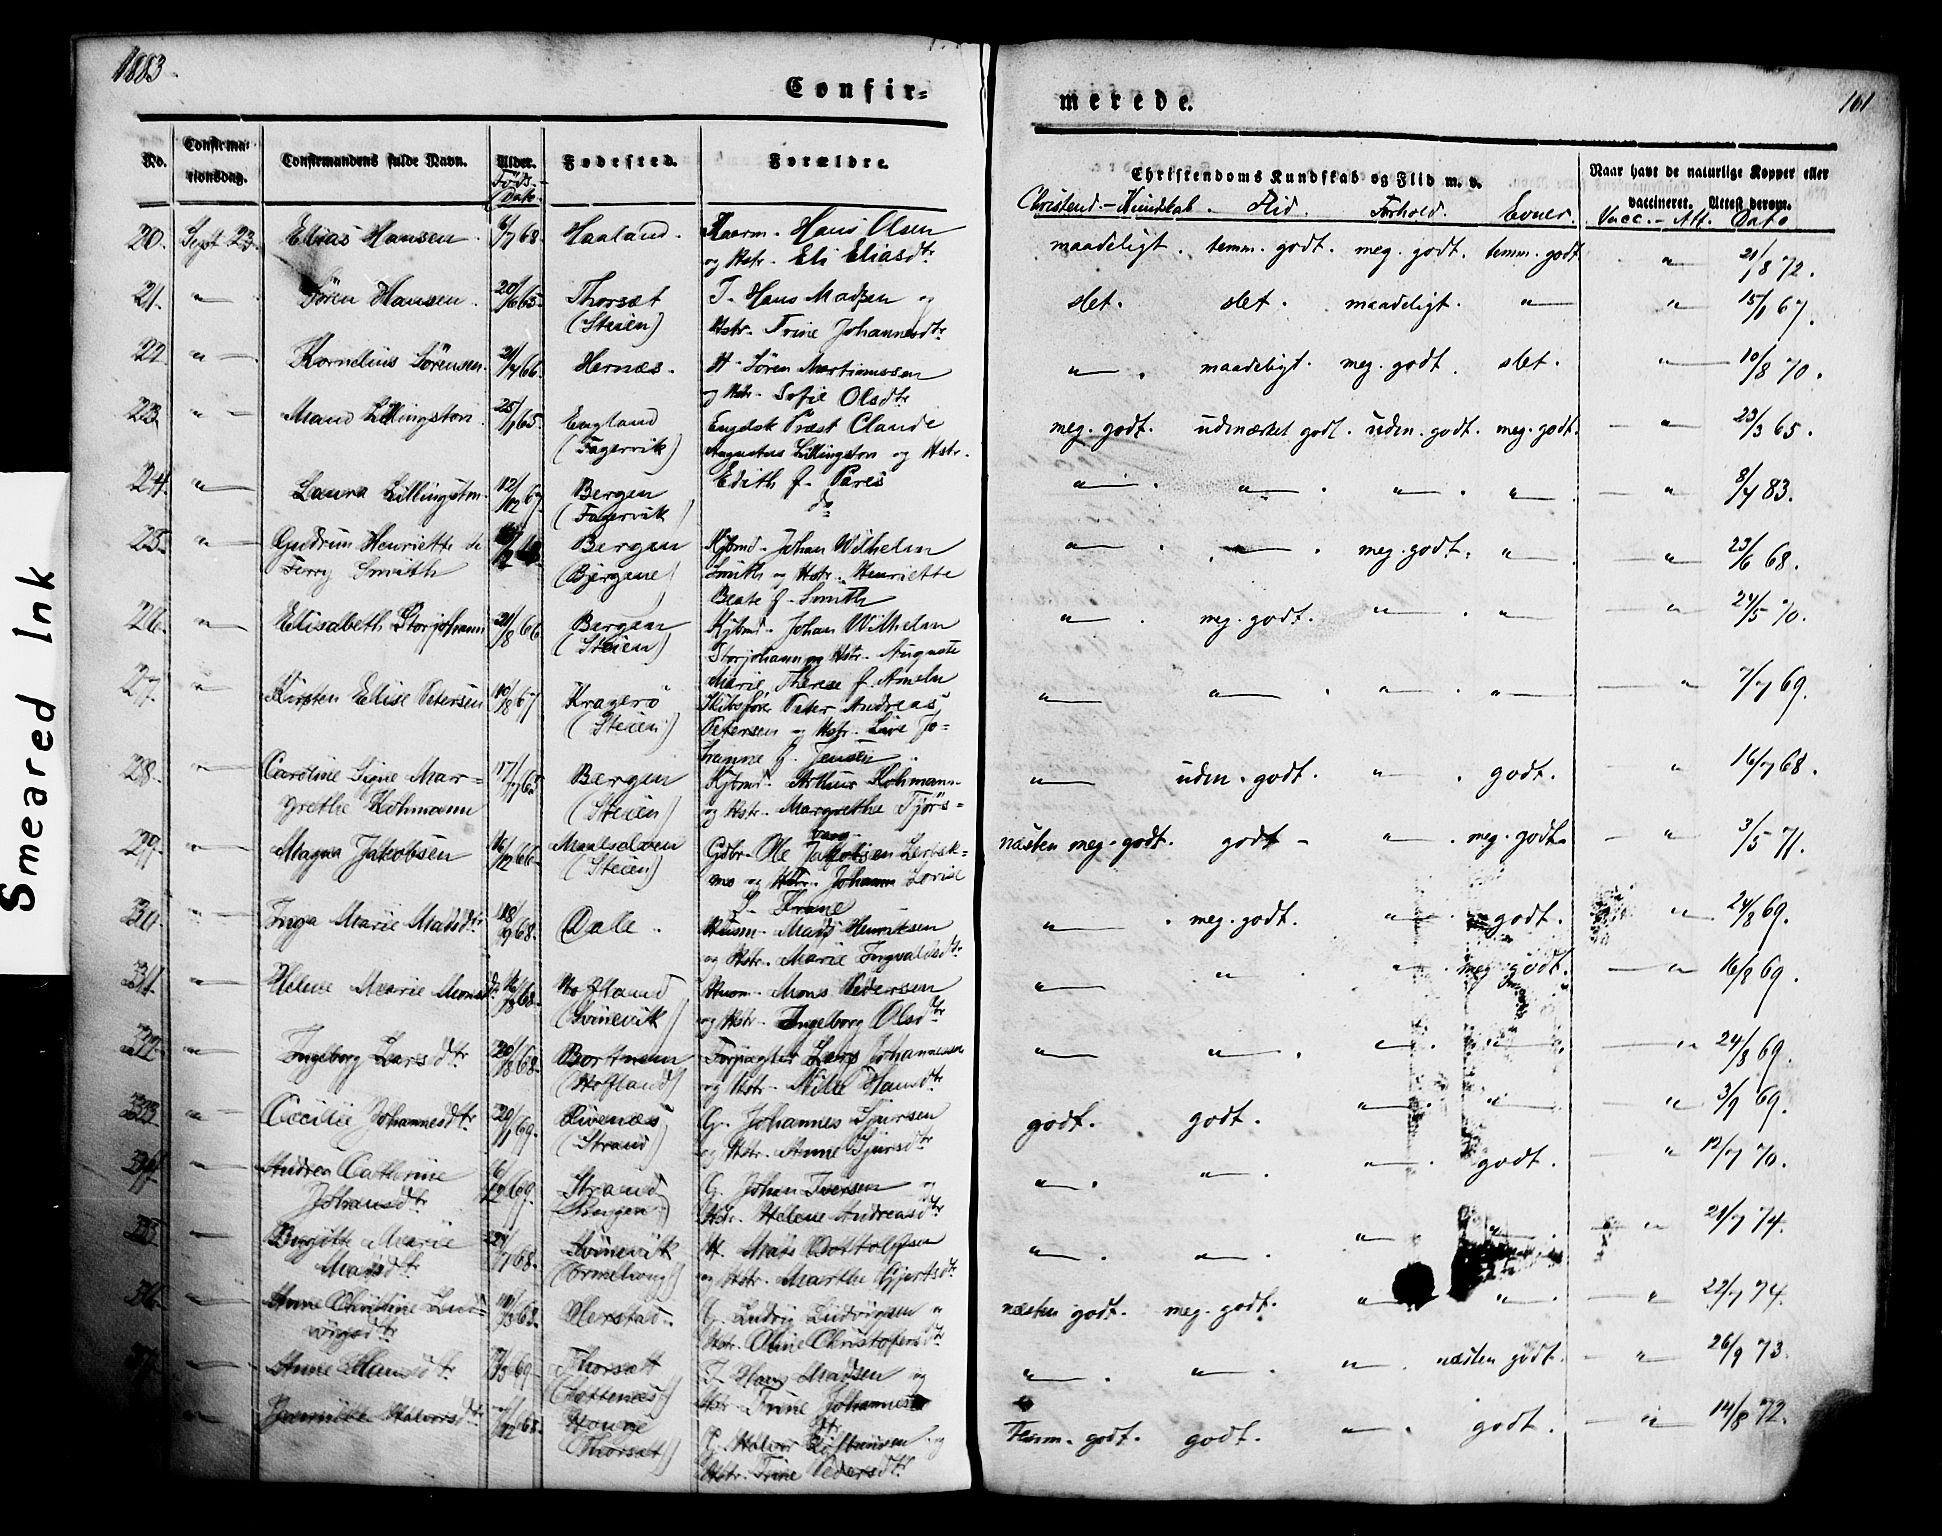 1883.
Confir-
merede.
161
No.
Confirma-
tionsdag.
Confirmandens fulde Navn.
Alder.
Föds-
Dato
Fødested.
Forældre.
Christendoms Kundskab og Flid m. v.
Naar havt de naturlige Kopper eller
vaccineret. Attest derom.
Christend.-Kundskab. Flid. Forhold. Evner. Vacc.-Att. Dato
20. Sept 23. Elias Hansen 68. Haaland. Kaarm. Hans Olsen
og Hstr. Eli Eliasdtr
maadeligt. temm. godt. meg. godt. temm. godt " 21/8 72.
21. " Søren Hansen. 20/6 65. Thorsæt
(Steien)
T. Hans Madsen og
Hstr. Trine Johannesdtr
slet. slet. maadeligt. " " 67.
22. " Kornelius Sörensen. 66. Hernæs. H. Søren Martinussen
og Hstr. Sofie Olsdtr
" maadeligt. meg. godt. slet. " 10/8 70.
23. " Maud Lillingston 25/1 65. England
(Fagervik)
Engelsk Præst Claude
Augustus Lillingston og Hstr.
Edith f. Pares
meg. godt. udmærket godt. udm. godt. meg. godt. " 23/3 65.
24. " Laura Lillingston. 12/12 67. Bergen
(Fagervik)
do
" " " " " 8/7 83.
25. " Gudrun Henriette de
Ferry Smith
Bergen
(Bjergene)
Kjbmd. Johan Wilhelm
Smith og Hstr. Henriette
Beate f. Smith
" " meg. godt. " " 23/6 68.
26. " Elisabeth Storjohann 66 Bergen
(Steien)
Kjbmd. Johan Wilhelm
Storjohann og Hstr. Auguste
Marie Therese f. Ameln
" meg. godt. " " " 24/5 70.
27. " Kirsten Elise Petersen 10/8 67 Kragerö
(Steien)
Skibsfører Peter Andreas
Petersen og Hstr. Live Jo-
hanne f. Jensen
" " " " " 7/7 69.
28. " Caroline Signe Mar-
grethe Kohmann
17/7 Bergen
(Steien)
Kjbmd. Arthur Kohmann
og Hstr. Margrethe Fjørs-
vaag
" udm. godt. " godt. " 16/7 68.
29. " Magna Jakobsen 16/12 66. Maalselven
(Steien)
Gdbr. Ole Jakobsen
mo og Hstr. Johanna Lovise
f. Krane
næsten meg. godt. godt " meg. godt. " 3/5 71.
30. " Inga Marie Madsdtr 18/9 68. Dale. Husm. Mads Henriksen
og Hstr. Marie Ingvaldsdtr
" meg. godt. " godt. " 24/8 69.
31. " Helene Marie Monsdtr 68. Hofland
(Svinevik)
Husm. Mons Pedersen
og Hstr. Ingeborg Olsdtr
" " " meg. godt. " 16/8 69.
32. " Ingeborg Larsdtr 20/8 68. Bortnen
(Hofland)
Forpagter Lars Johannessen
og Hstr. Hansdtr
" " " " " 24/8 69.
33. " Cecilie Johannesdtr 20/1 69. Rivenæs
(Strand)
G. Johannes Sjursen
og Hstr. Anne Sjursdtr
godt. godt. " " " 3/9 69.
34. " Andrea Cathrine
Johansdtr
69. Strand
G. Johan Iversen og
Hstr. Helene Andreasdtr
" " " godt. " 12/7 70.
35. " Birgitte Marie
Madsdtr
68. Svinevik
(Ormehaug)
H. Mads Bottolfsen
og Hstr. Marthe Gjertsdtr
" " " " " 21/7 74.
36. " Anne Christine Lud-
vigsdtr
68. Herstad. G. Ludvig Ludvigsen og
Hstr. Oline Christofersdtr
næsten godt. meg. godt. " " " 22/7 74.
37. " Anne Hansdtr 69. Thorsæt
T. Hans Madsen og
Hstr. Trine Johannesdtr
" " " næsten godt. " 26/9 73.
" Pernille Halvorsdtr 68. Hovne
(Thorsæt)
G. Halvor og
Hstr. Trine Pedersdtr
Temm. godt. godt. " godt. " 14/8 72.
Smeared Ink